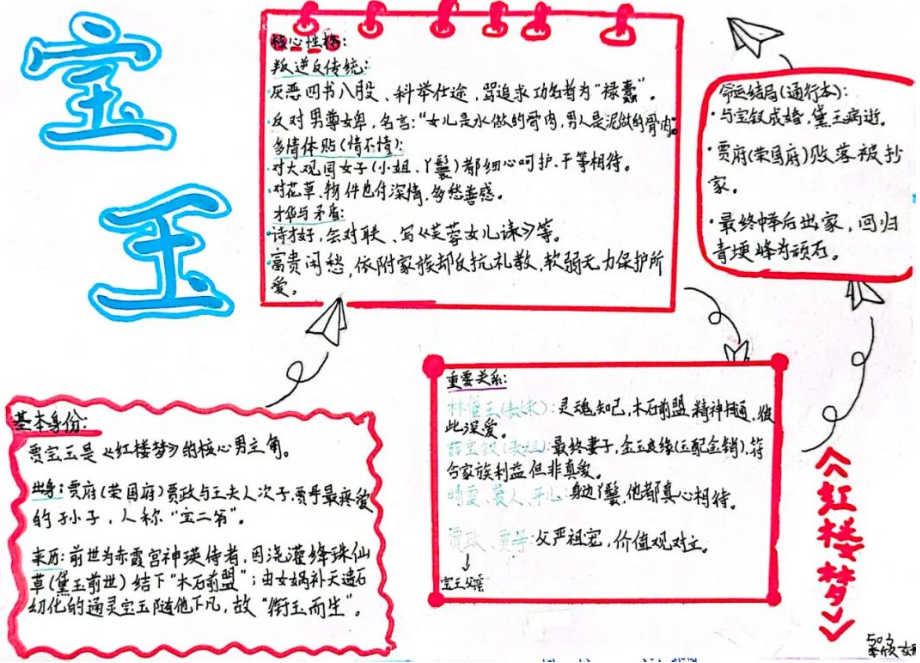 宝
玉
核心性格:
叛逆反传统:
·反恶四书八股、科举仕途,骂追求功名者为"禄蠹"。
·反对男尊女卑,名言:"女儿是水做的骨肉,男人是泥做的骨肉。
多情体贴(情不情):
·对大观园女子(小姐、丫鬟)都细心呵护、干等相待。
·对花草、物件也付深情,多愁善感。
才华与矛盾:
·诗才好,会对联、写《芙蓉女儿诔》等。
·富贵闲愁,依附家族却反抗礼教,软弱无力保护所
爱。
命运结局(通行本):
·与宝钗成婚,黛玉病逝。
·贾府(荣国府)败落被抄
家。
·最终中举后出家,回归
青埂峰为顽石。
基本身份:
贾宝玉是《红楼梦》的核心男主角。
出身:贾府(荣国府)贾政与王夫人次子,贾母最疼爱
的孙子,人称"宝二爷"。
来历:前世为赤霞宫神瑛侍者,因浇灌绛珠仙
草(黛玉前世)结下"木石前盟";由女娲补天遗石
幻化的通灵宝玉随他下凡,故"衔玉而生"。
重要关系:
林黛玉(表妹):灵魂知己,木石前盟,精神相通,彼
此深爱。
薛宝钗(表姐):最终妻子,金玉良缘(玉配金锁),符
合家族利益但非真爱。
晴雯、袭人、平儿:身边丫鬟,他都真心相待。
贾政、贾母:父严祖宠,价值观对立。
↓
宝玉父亲
《红楼梦》